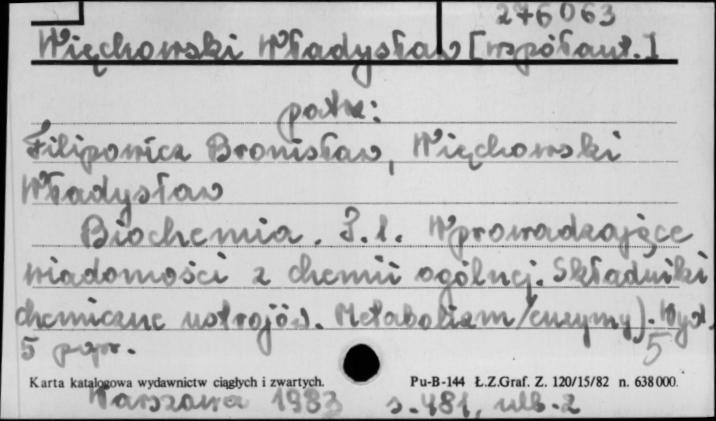 276063
Więchowski Władysław [współaut.]
patrz:
Filipowicz Bronisław, Więchowski
Władysław
Biochemia. T.1. Wprowadzające
wiadomości z chemii ogólnej. Składniki
chemiczne ustrojów. Metabolizm /enzymy). Wyd.
5 popr. 5
Karta katalogowa wydawnictw ciągłych i zwartych. Pu-B-144 Ł.Z.Graf. Z. 120/15/82 n. 638000.
Warszawa 1983 s. 481, nlb. 2